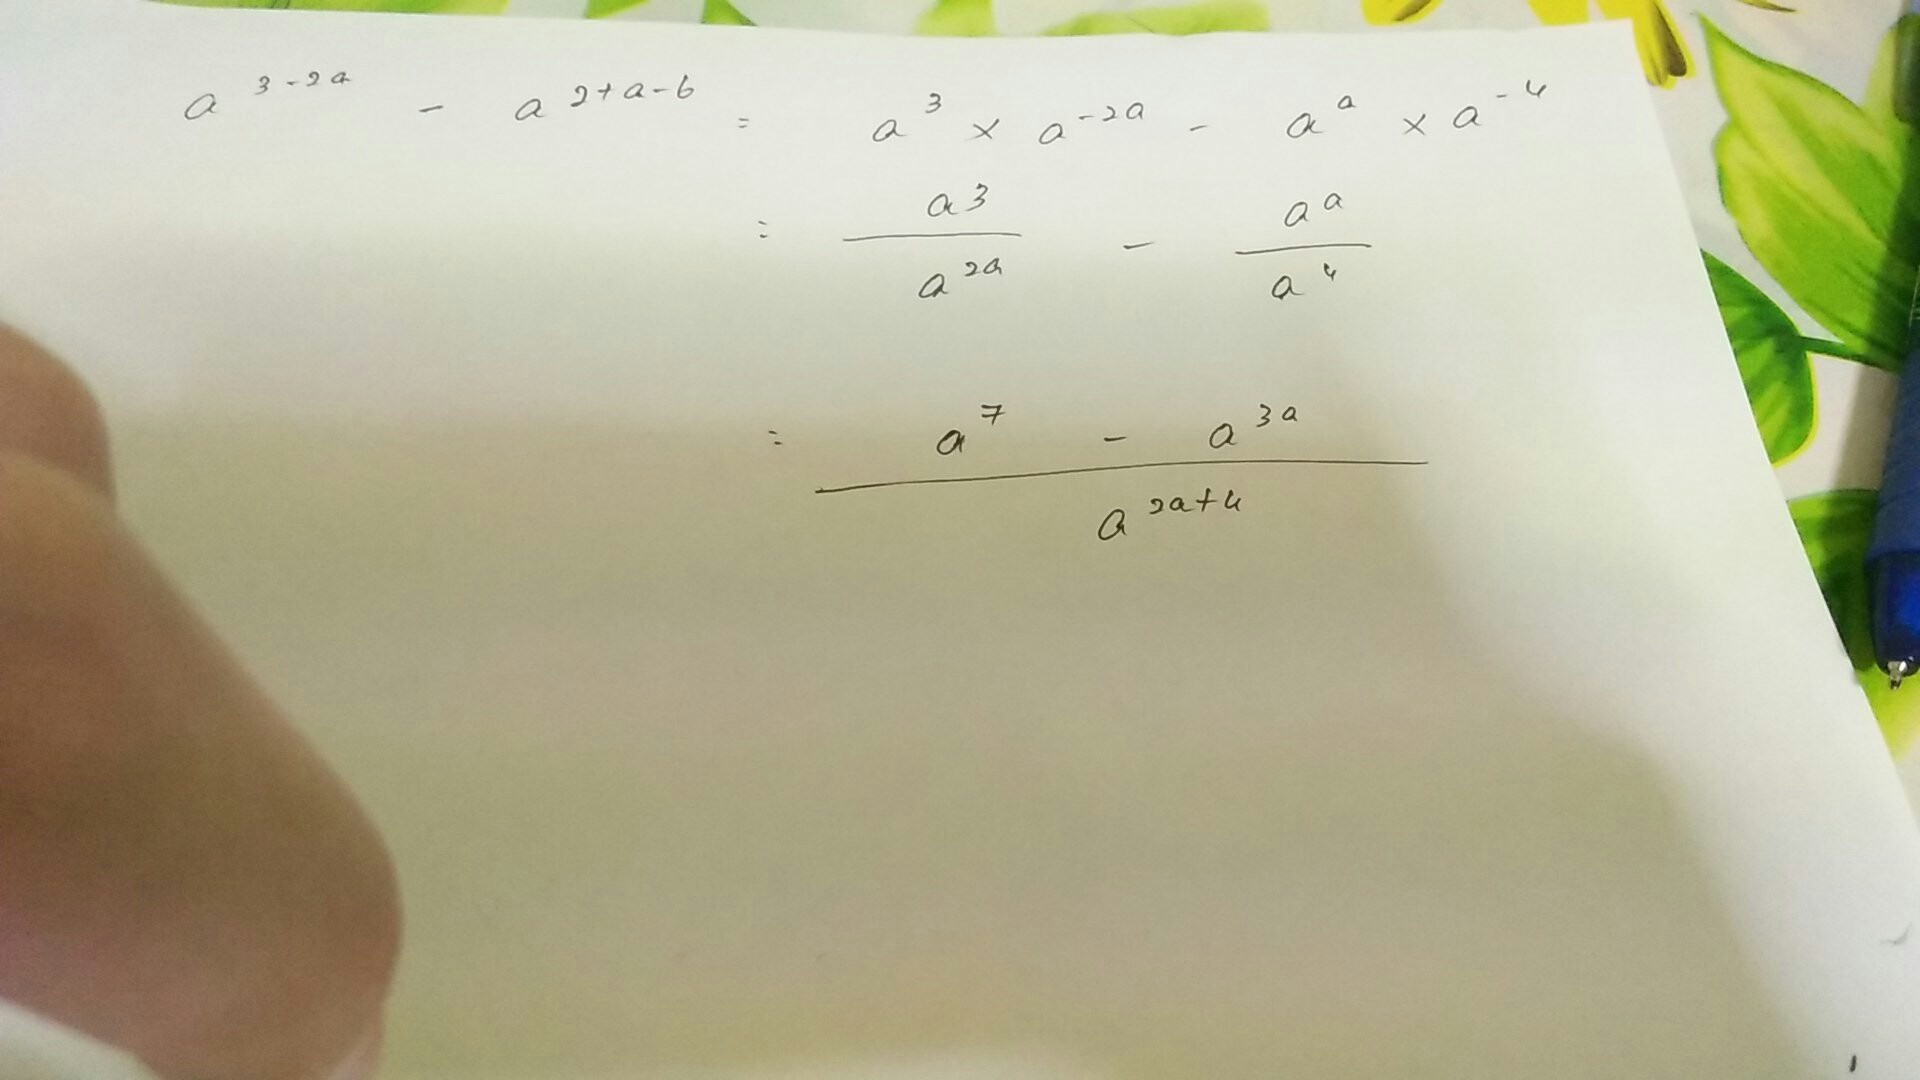 a^{3-2a} - a^{2+a-6} = a^3 × a^{-2a} - a^a × a^{-4}
= \frac{a^3}{a^{2a}} - \frac{a^a}{a^4}
= \frac{a^7 - a^{3a}}{a^{2a+4}}